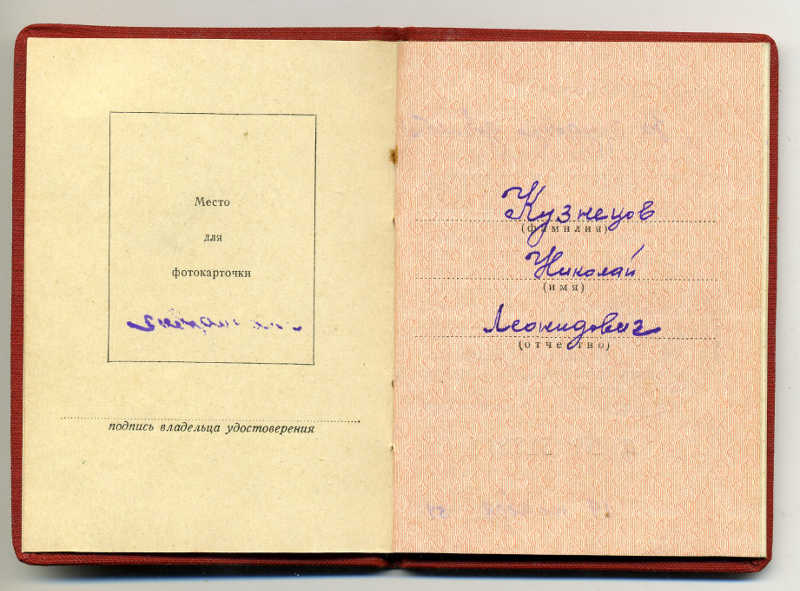 Место
для
фотокарточки
подпись владельца удостоверения
Кузнецов
(фамилия)
Николай
(имя)
Леонидович
(отчество)